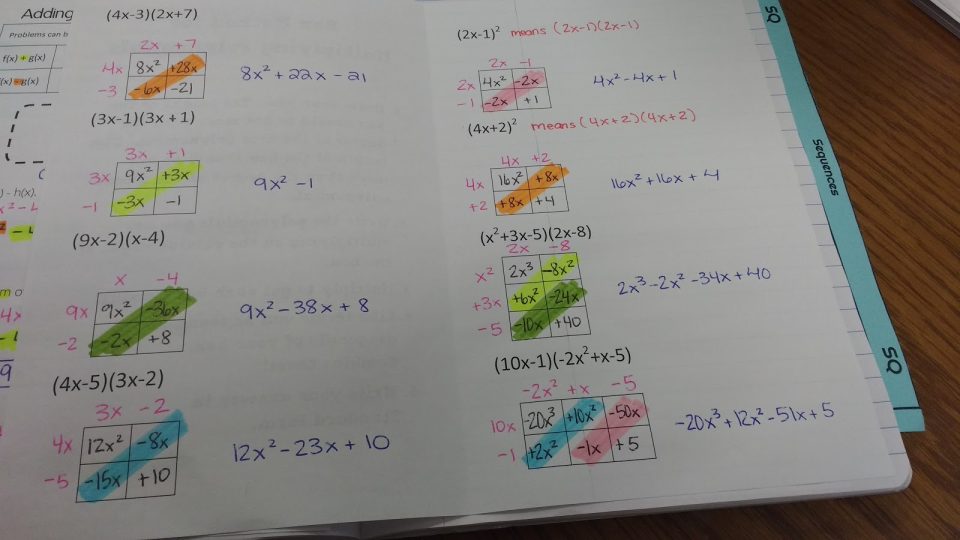 Adding
Problems can b
f(x) + g(x)
(x) - g(x)
) - h(x).
x² - 4
9
(4x-3)(2x+7)
2x +7
4x 8x² +28x
-3 -6x -21
8x² + 22x - 21
(3x-1)(3x+1)
3x +1
3x 9x² +3x
-1 -3x -1
9x² - 1
(9x-2)(x-4)
x -4
9x 9x² -36x
-2 -2x +8
9x² - 38x + 8
(4x-5)(3x-2)
3x -2
4x 12x² -8x
-5 -15x +10
12x² - 23x + 10
(2x-1)² means (2x-1)(2x-1)
2x -1
2x 4x² -2x
-1 -2x +1
4x² - 4x + 1
(4x+2)² means (4x+2)(4x+2)
4x +2
4x 16x² +8x
+2 +8x +4
16x² + 16x + 4
(x²+3x-5)(2x-8)
2x -8
x² 2x³ -8x²
+3x +6x² -24x
-5 -10x +40
2x³ - 2x² - 34x + 40
(10x-1)(-2x²+x-5)
-2x² +x -5
10x -20x³ +10x² -50x
-1 +2x² -1x +5
-20x³ + 12x² - 51x + 5
SQ
Sequences
SQ